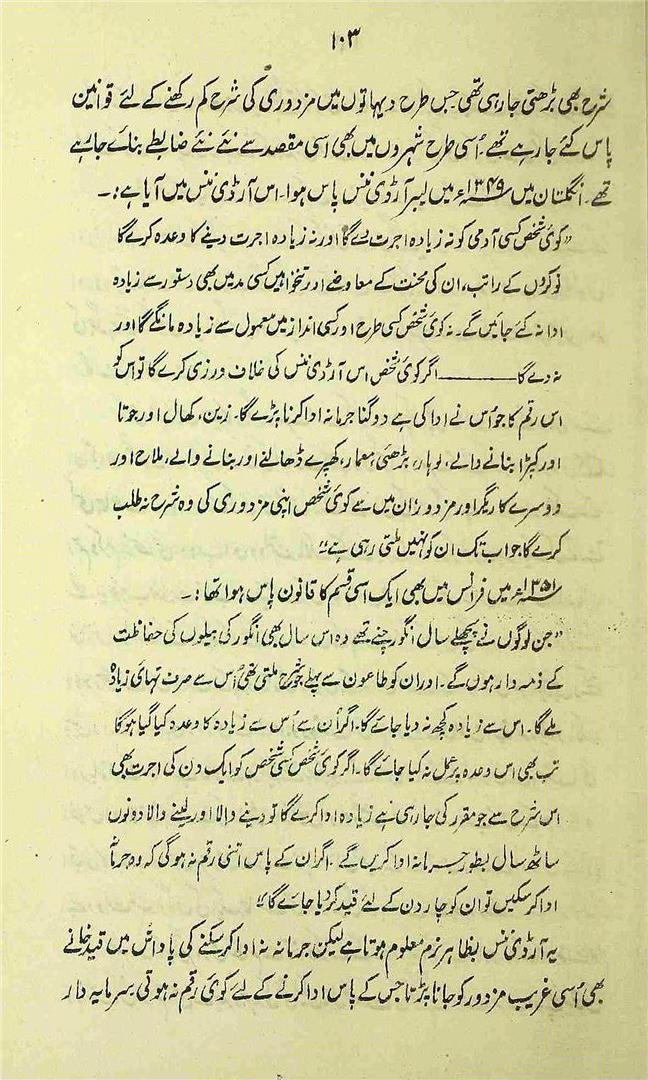 ۱۰۳
شرح بھی بڑھتی جا رہی تھی جس طرح دیہاتوں میں مزدوری کی شرح کم رکھنے کے لئے قوانین
پاس کئے جا رہے تھے۔ اُسی طرح شہروں میں بھی اسی مقصد سے نئے نئے ضابطے بنائے جا رہے
تھے۔ انگلستان میں ۱۳۴۹ء میں لیبر آرڈی ننس پاس ہوا۔ اس آرڈی ننس میں آیا ہے:۔
"کوئی شخص کسی آدمی کو نہ زیادہ اجرت دے گا اور نہ زیادہ اجرت دینے کا وعدہ کرے گا
نوکروں کے راتب، ان کی محنت کے معاوضے اور تنخواہیں کسی مد میں بھی دستور سے زیادہ
ادا نہ کئے جائیں گے۔ نہ کوئی شخص کسی طرح اور کسی انداز میں معمول سے زیادہ مانگے گا اور
نہ دے گا ــــــــــ اگر کوئی شخص اس آرڈی ننس کی خلاف ورزی کرے گا تو اس کو
اس رقم کا جو اُس نے ادا کی ہے دوگنا جرمانہ ادا کرنا پڑے گا۔ زین، کھال اور جوتا
اور کپڑا بنانے والے، لوہار، بڑھئی، معمار، کھپرے ڈھالنے اور بنانے والے، ملاح اور
دوسرے کاریگر اور مزدوران میں سے کوئی شخص اپنی مزدوری کی وہ شرح نہ طلب
کرے گا جو اب تک ان کو نہیں ملتی رہی ہے"
۱۳۵۱ء میں فرانس میں بھی ایک اسی قسم کا قانون پاس ہوا تھا:۔
"جن لوگوں نے پچھلے سال انگور چنے تھے وہ اس سال بھی انگور کی بیلوں کی حفاظت
کے ذمہ دار ہوں گے۔ اور ان کو طاعون سے پہلے جو شرح ملتی تھی اُس سے صرف تہائی زیادہ
ملے گا۔ اس سے زیادہ کچھ نہ دیا جائے گا۔ اگر اُن سے اُس سے زیادہ کا وعدہ کیا گیا ہوگا
تب بھی اس وعدہ پر عمل نہ کیا جائے گا۔ اگر کوئی شخص کسی شخص کو ایک دن کی اجرت بھی
اس شرح سے جو مقرر کی جا رہی ہے زیادہ ادا کرے گا تو دینے والا اور لینے والا دونوں
ساٹھ سال بطور جرمانہ ادا کریں گے۔ اگر ان کے پاس اتنی رقم نہ ہوگی کہ وہ جرمانہ
ادا کر سکیں تو ان کو چار دن کے لئے قید کر دیا جائے گا"
یہ آرڈی ننس بظاہر نرم معلوم ہوتا ہے لیکن جرمانہ نہ ادا کر سکنے کی پاداش میں قید خانے
بھی اُسی غریب مزدور کو جانا پڑتا جس کے پاس ادا کرنے کے لئے کوئی رقم نہ ہوتی سرمایہ دار